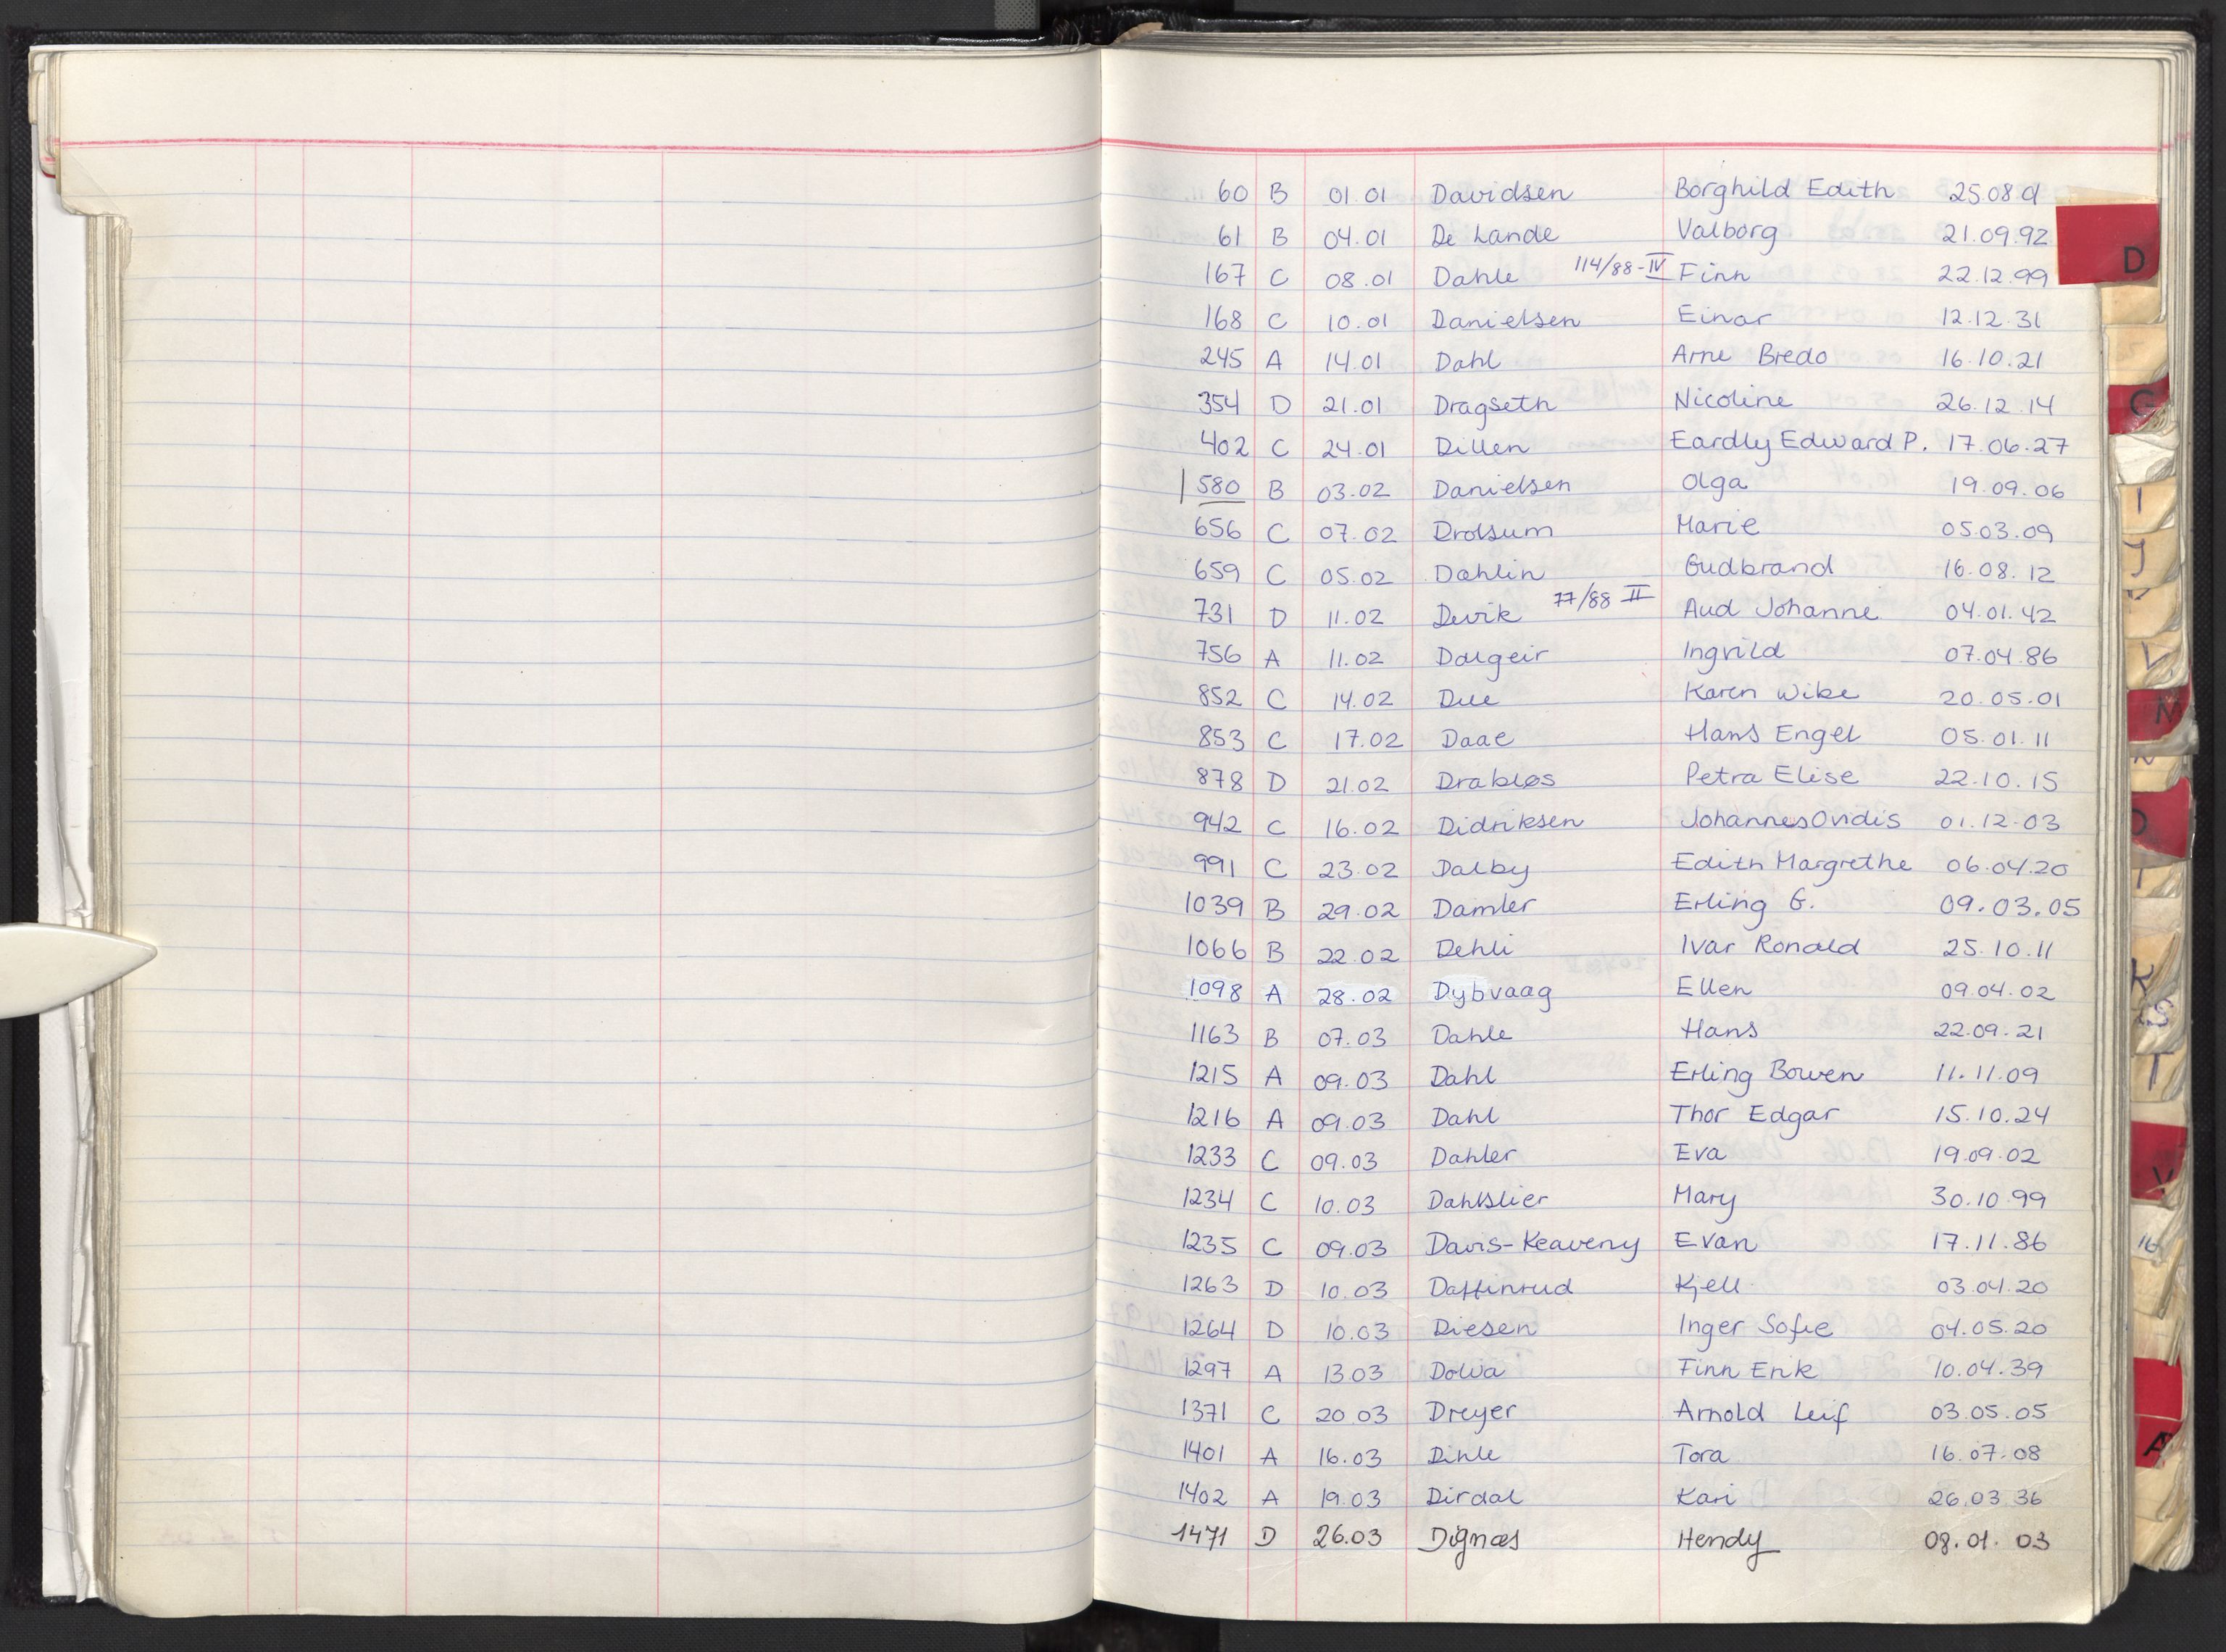 60 B 01.01 Davidsen Borghild Edith 25.08.
61 B 04.01 De Lande Valborg 21.09.92
167 C 08.01 Dahle 114/88-IV Finn 22.12.99
D
168 C 10.01 Danielsen Einar 12.12.31
245 A 14.01 Dahl Arne Bredo 16.10.21
354 D 21.01 Dragseth Nicoline 26.12.14
G
402 C 24.01 Dillen Eardly Edward P. 17.06.27
580 B 03.02 Danielsen Olga 19.09.06
I
656 C 07.02 Drolsum Marie 05.03.09
J
659 C 05.02 Dahlin Gudbrand 16.08.12
731 D 11.02 Devik 77/88 II Aud Johanne 04.01.42
756 A 11.02 Dalgeir Ingvild 07.04.86
852 C 14.02 Due Karen Wibe 20.05.01
M
853 C 17.02 Daae Hans Engel 05.01.11
878 D 21.02 Drabløs Petra Elise 22.10.15
942 C 16.02 Didriksen Johannes Ovidis 01.12.03
991 C 23.02 Dalby Edith Margrethe 06.04.20
1039 B 29.02 Damler Erling G. 09.03.05
1066 B 22.02 Dehli Ivar Ronald 25.10.11
K
1098 A 28.02 Dybvaag Ellen 09.04.02
S
1163 B 07.03 Dahle Hans 22.09.21
1215 A 09.03 Dahl Erling Bowen 11.11.09
T
1216 A 09.03 Dahl Thor Edgar 15.10.24
1233 C 09.03 Dahler Eva 19.09.02
V
1234 C 10.03 Dahlslier Mary 30.10.99
1235 C 09.03 Davis-Keaveny Evan 17.11.86
1263 D 10.03 Daffinrud Kjell 03.04.20
1264 D 10.03 Diesen Inger Sofie 04.05.20
1297 A 13.03 Dolva Finn Erik 10.04.39
1371 C 20.03 Dreyer Arnold Leif 03.05.05
1401 A 16.03 Dihle Tora 16.07.08
1402 A 19.03 Dirdal Kari 26.03.36
1471 D 26.03 Dignæs Hendy 08.01.03